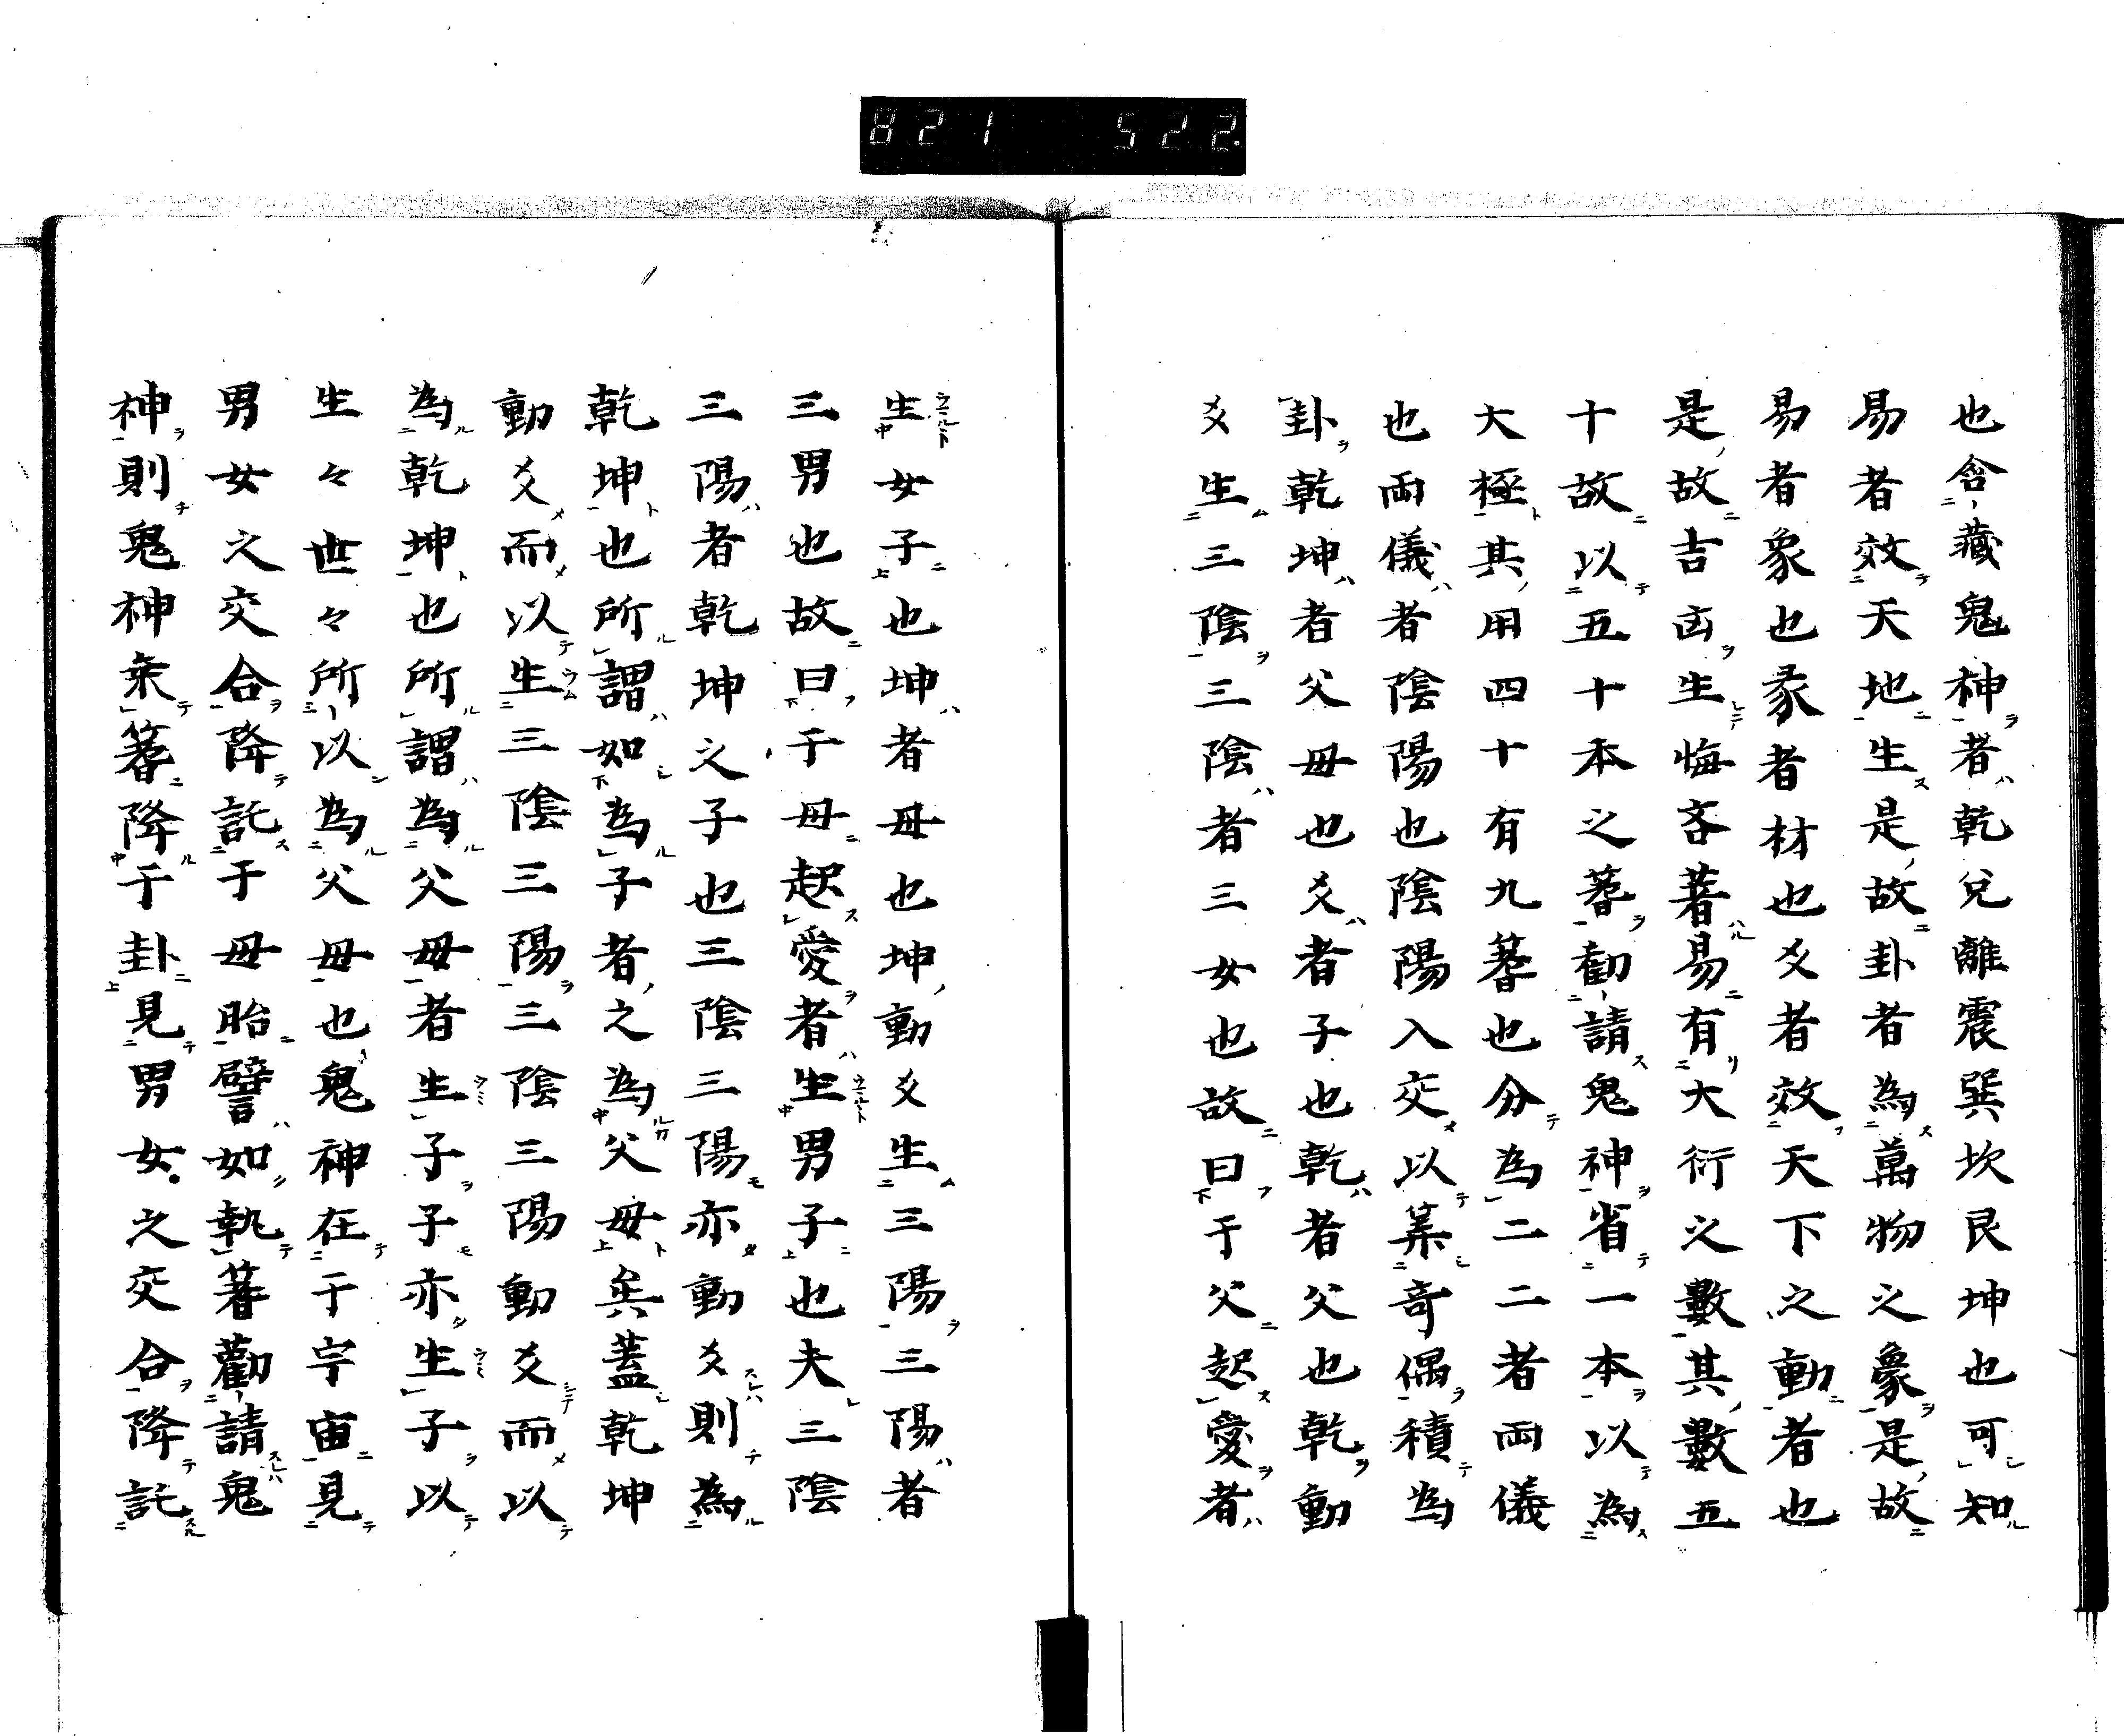 821 522.
也含藏鬼神者乾兌離震巽坎艮坤也可知
易者效天地生是故卦者為萬物之象是故
易者象也彖者材也爻者效天下之動者也
是故吉凶生悔吝著易有大衍之數其數五
十故以五十本之蓍勸請鬼神省一本以為
大極其用四十有九蓍也分為二二者兩儀
也兩儀者陰陽也陰陽入交以筭奇偶積為
卦乾坤者父母也爻者子也乾者父也乾動
爻生三陰三陰者三女也故曰于父起愛者
生女子也坤者母也坤動爻生三陽三陽者
三男也故曰于母起愛者生男子也夫三陰
三陽者乾坤之子也三陰三陽亦動爻則為
乾坤也所謂如為子者之為父母矣蓋乾坤
動爻而以生三陰三陽三陰三陽動爻而以
為乾坤也所謂為父母者生子子亦生子以
生々世々所以為父母也鬼神在于宇宙見
男女之交合降託于母胎譬如執蓍勸請鬼
神則鬼神乘蓍降于卦見男女之交合降託